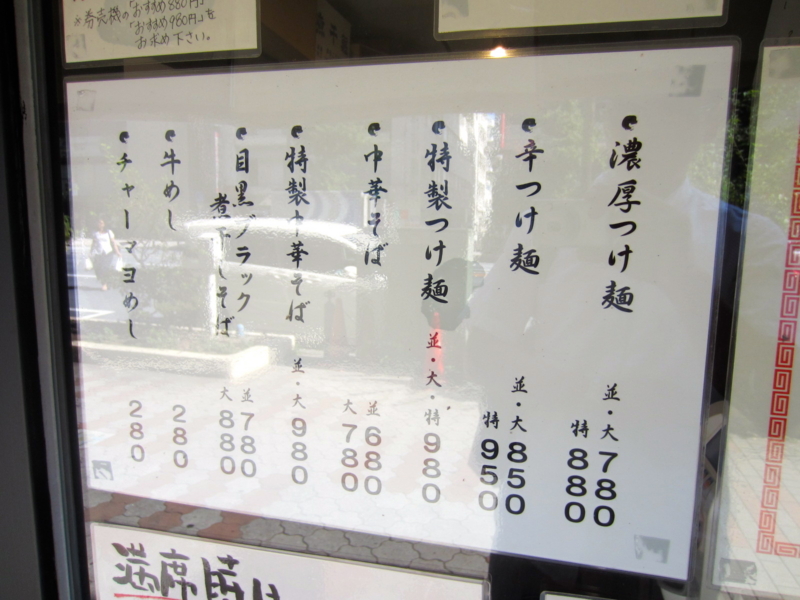 ※券売機の「お薦め880円」
「お薦め980円」を
お求め下さい。
濃厚つけ麺
並・大 780
特 880
辛つけ麺
並・大 850
特 950
特製つけ麺
並・大・特 980
中華そば
並 680
大 780
特製中華そば
並・大 980
目黒ブラック
煮干しそば
並 780
大 880
牛めし
280
チャーマヨめし
280
満席時は